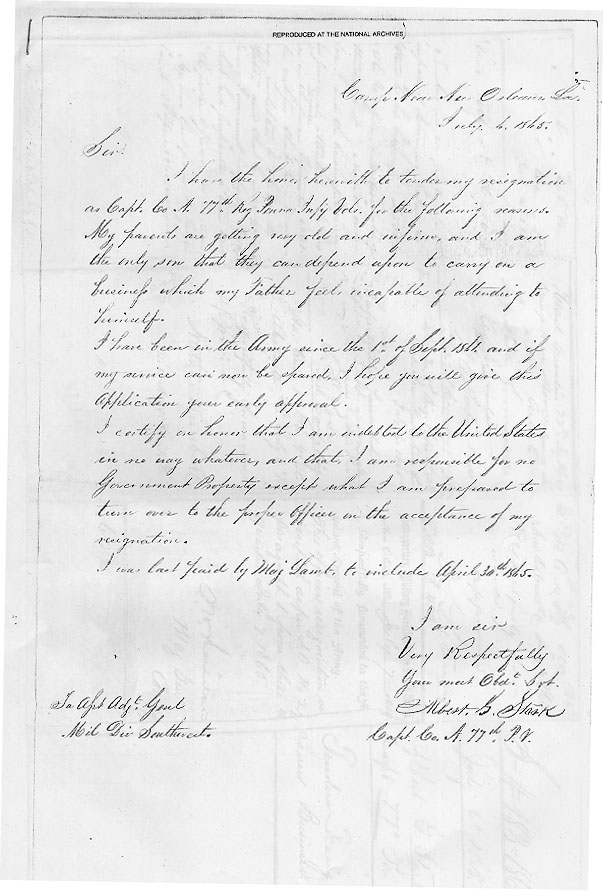 REPRODUCED AT THE NATIONAL ARCHIVES
Camp Near New Orleans La.
July 6. 1865.
Sir.
I have the honor herewith to tender my resignation
as Capt. Co A. 77th Reg Penna Infy Vols. for the following reasons.
My parents are getting very old and infirm, and I am
the only son that they can depend upon to carry on a
business which my Father feels incapable of attending to
himself.
I have been in the Army since the 1st of Sept. 1861. and if
my service can now be spared, I hope you will give this
Application your early approval.
I certify on honor that I am indebted to the United States
in no way whatever, and that, I am responsible for no
Government Property except what I am prepared to
turn over to the proper Officer on the acceptance of my
resignation.
I was last paid by Maj Lamt. to include April 30th 1865.
I am sir
Very Respectfully
Your most Obdt. Svt.
Albert. G. Stark
Capt. Co. A. 77th P. V.
To Asst Adjt. Genl
Mil Div Southwest.